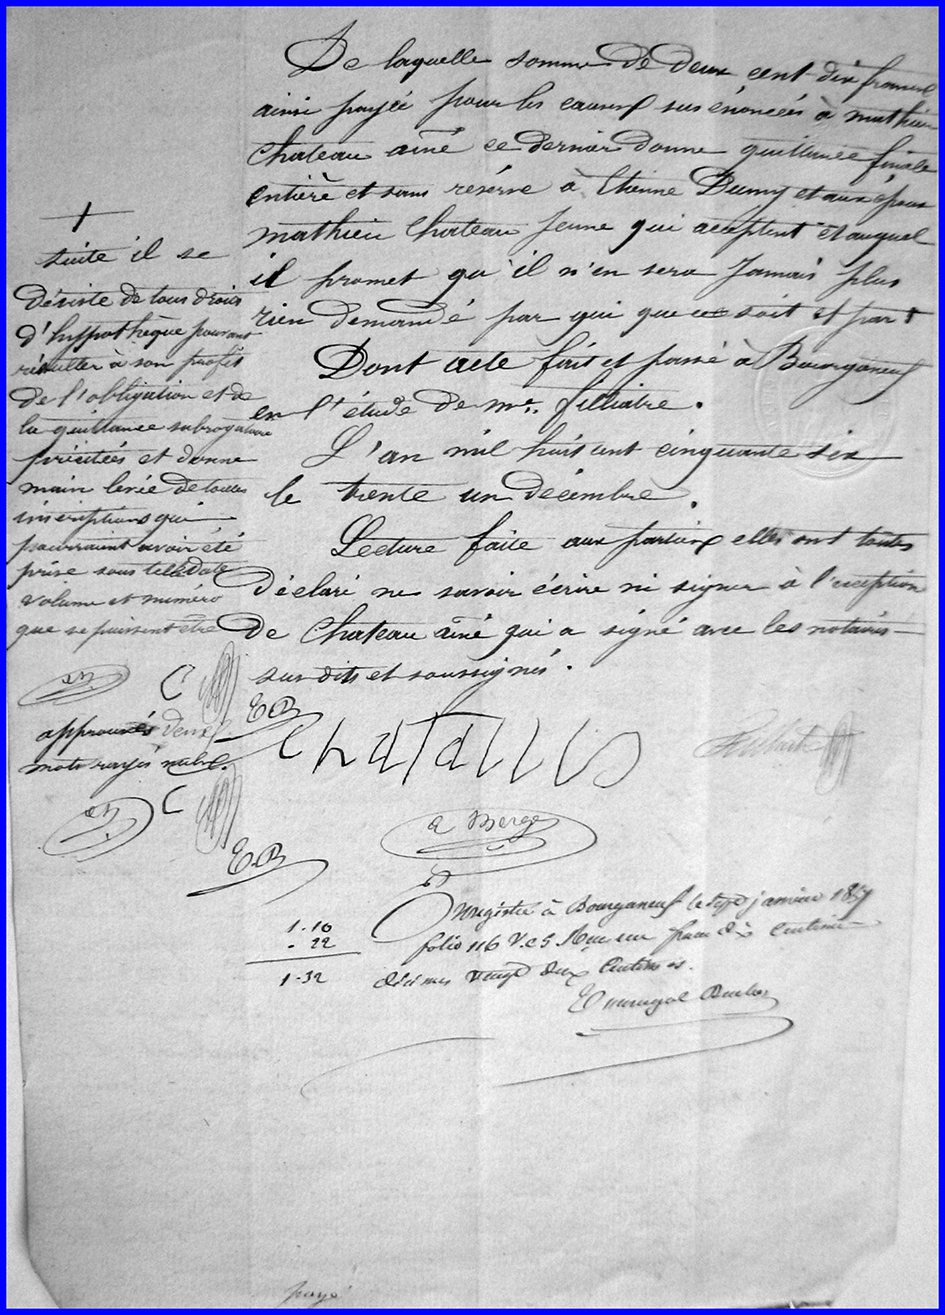 De laquelle somme de deux cent dix francs
ainsi payée pour les causes sus énoncées à mathieu
Chateau ainé ce dernier donne quittance finale
entière et sans réserve à Etienne Dumy et aux époux
mathieu Chateau Jeune qui aceptent et auquel
il promet qu'il n'en sera Jamais plus
rien demandé par qui que ce soit et part +
Dont acte fait et passé à Bourganeuf
en l'étude de me. filliatre.
L'an mil huit cent cinquante six
le trente un décembre.
Lecture faite aux parties elles ont toutes
déclaré ne savoir écrire ni signer à l'exception
de Chateau ainé qui a signé avec les notaires
sus dits et soussignés.
+
suite il se
désiste de tous droits
d'hyppothèque pouvant
résulter à son profit
de l'obligation et de
la quittance subrogatoire
précitées et donne
main levée de toutes
inscriptions qui
pourraient avoir été
prise sous telle date
volume et numero
que se puissent être
C
approuvés deux
mots rayés nuls.
C
EB
EB
a Berge
1-10
- 22
1-32
Enregistré à Bourganeuf le sept janvier 1857
folio 116 V. c 5 Reçu un franc dix centimes
décimes vingt deux centimes.
payé